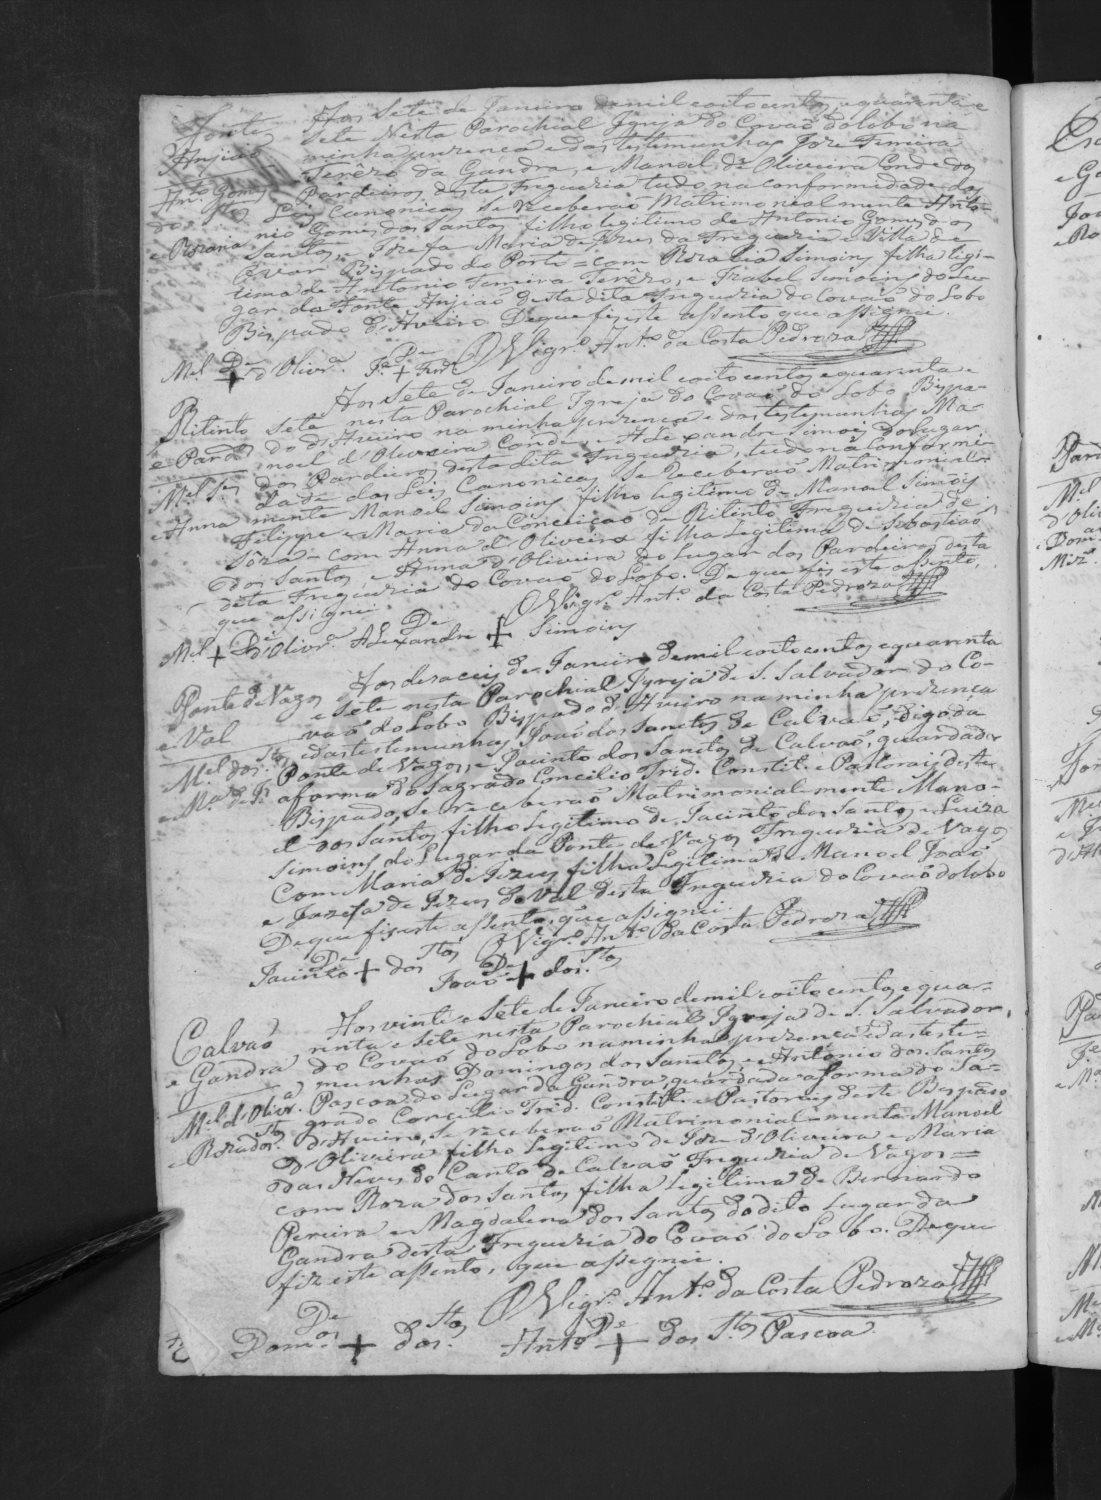 Fonte
Anjiaõ
Antº Gomes
dos Stos
e Rozaria
Aos Sete de Janeiro de mil eoito centos, e quarenta e
Sete nesta Parochial Igreja do Covaõ do Lobo na
minha prezença e das testemunhas Joze Ferreira
Terêzo da Gandra, e Manoel de Oliveira Conde dos
Pardeiros desta Freguezia tudo na conformidade das
Leis Canonicas Se receberaõ Matrimonial mente Anto-
nio Gomes dos Santos filho legitimo de Antonio Gomes dos
Santos, e Jozefa Maria de Jezus da Freguezia e Villa de
Ovar Bispado do Porto = com Rozalia Simoins filha legi-
tima de Antonio Ferreira Terêzo, e Izabel Simoins do Lu-
gar da Fonte Anjiaõ desta dita Freguezia do Covaõ do Lobo
Bispado d'Aveiro. De que fiz este assento que assignei.
O Vigrº Antº da Costa Pedroza
Mel De + d'Olivrª Je De + Ferrª
Ritinto
e Pardos
Mel Ses
e Anna
Aos Sete de Janeiro de mil eoito centos e quarenta e
Sete nesta Parochial Igreja do Covaõ do Lobo Bispa-
do d'Aveiro na minha prezença e das testemunhas Ma-
noel d'Oliveira Conde, e Alexandre Simois do Lugar
dos Pardeiros desta dita Freguezia, tudo na conformi-
dade das Leis Canonicas Se receberaõ Matrimonial-
mente Manoel Simoins filho legitimo de Manoel Simois
Filippe e Maria da Conceiçaõ de Ritinto Freguezia de
Sôza = com Anna d'Oliveira filha Legitima de Sebastiaõ
dos Santos, e Anna d'Oliveira do Lugar dos Pardeiros desta
dita Freguezia do Covaõ do Lobo. De que fiz este assento,
que assignei.
O Vigrº Antº da Costa Pedroza
Mel + De d'Olivrª Alexandre De + Simoins
Ponte de Vagos
e Val
Mel dos Stos
e Ma de Js
Aos desaceis de Janeiro de mil eoito centos, e quarenta
e Sete nesta Parochial Igreja de S. Salvador do Co-
vaõ do Lobo Bispado d'Aveiro na minha prezença
e das testemunhas Joaõ dos Sanctos de Calvaõ, digo da
Ponte de Vagos, e Jacinto dos Sanctos de Calvaõ, guardada
a forma do Sagrado Concilio Trid. Constit. e Pastorais deste
Bispado, Se receberaõ Matrimonial-mente Mano-
el dos Santos filho Legitimo de Jacinto dos Santos, e Luiza
Simoins do Lugar da Ponte de Vagos Freguezia de Vagos
Com Maria de Jezus filha Legitima de Manoel Joaõ
e Jozefa de Jezus do Val desta Freguezia do Covaõ do Lobo
De que fiz este assento, que assignei.
O Vigrº Antº da Costa Pedroza
Jacinto De + dos Stos Joaõ De + dos Stos
Calvaõ
e Gandra
Mel d'Olivrª
e Roza dos Stos
Aos vinte e Sete de Janeiro de mil eoito centos, e qua-
renta e Sete nesta Parochial Igreja de S. Salvador,
do Covaõ do Lobo na minha prezença e das teste-
munhas Domingos dos Sanctos, e Antonio dos Santos
Pascoa do Lugar da Gandra, guardada a forma do Sa-
grado Concilio Trid. Constit. e Pastorais deste Bispado
d'Aveiro, Se receberaõ Matrimonial-mente Manoel
d'Oliveira filho Legitimo de Joze d'Oliveira e Maria
das Neves do Canto de Calvaõ Freguezia de Vagos =
com Roza dos Santos filha Legitima de Bernardo
Pereira e Magdalena dos Santos do dito Lugar da
Gandra desta Freguezia do Covaõ do Lobo. De que
fiz este assento, que assignei.
O Vigrº Antº da Costa Pedroza
Domos De + dos Stos Antº De + dos Stos Pascoa